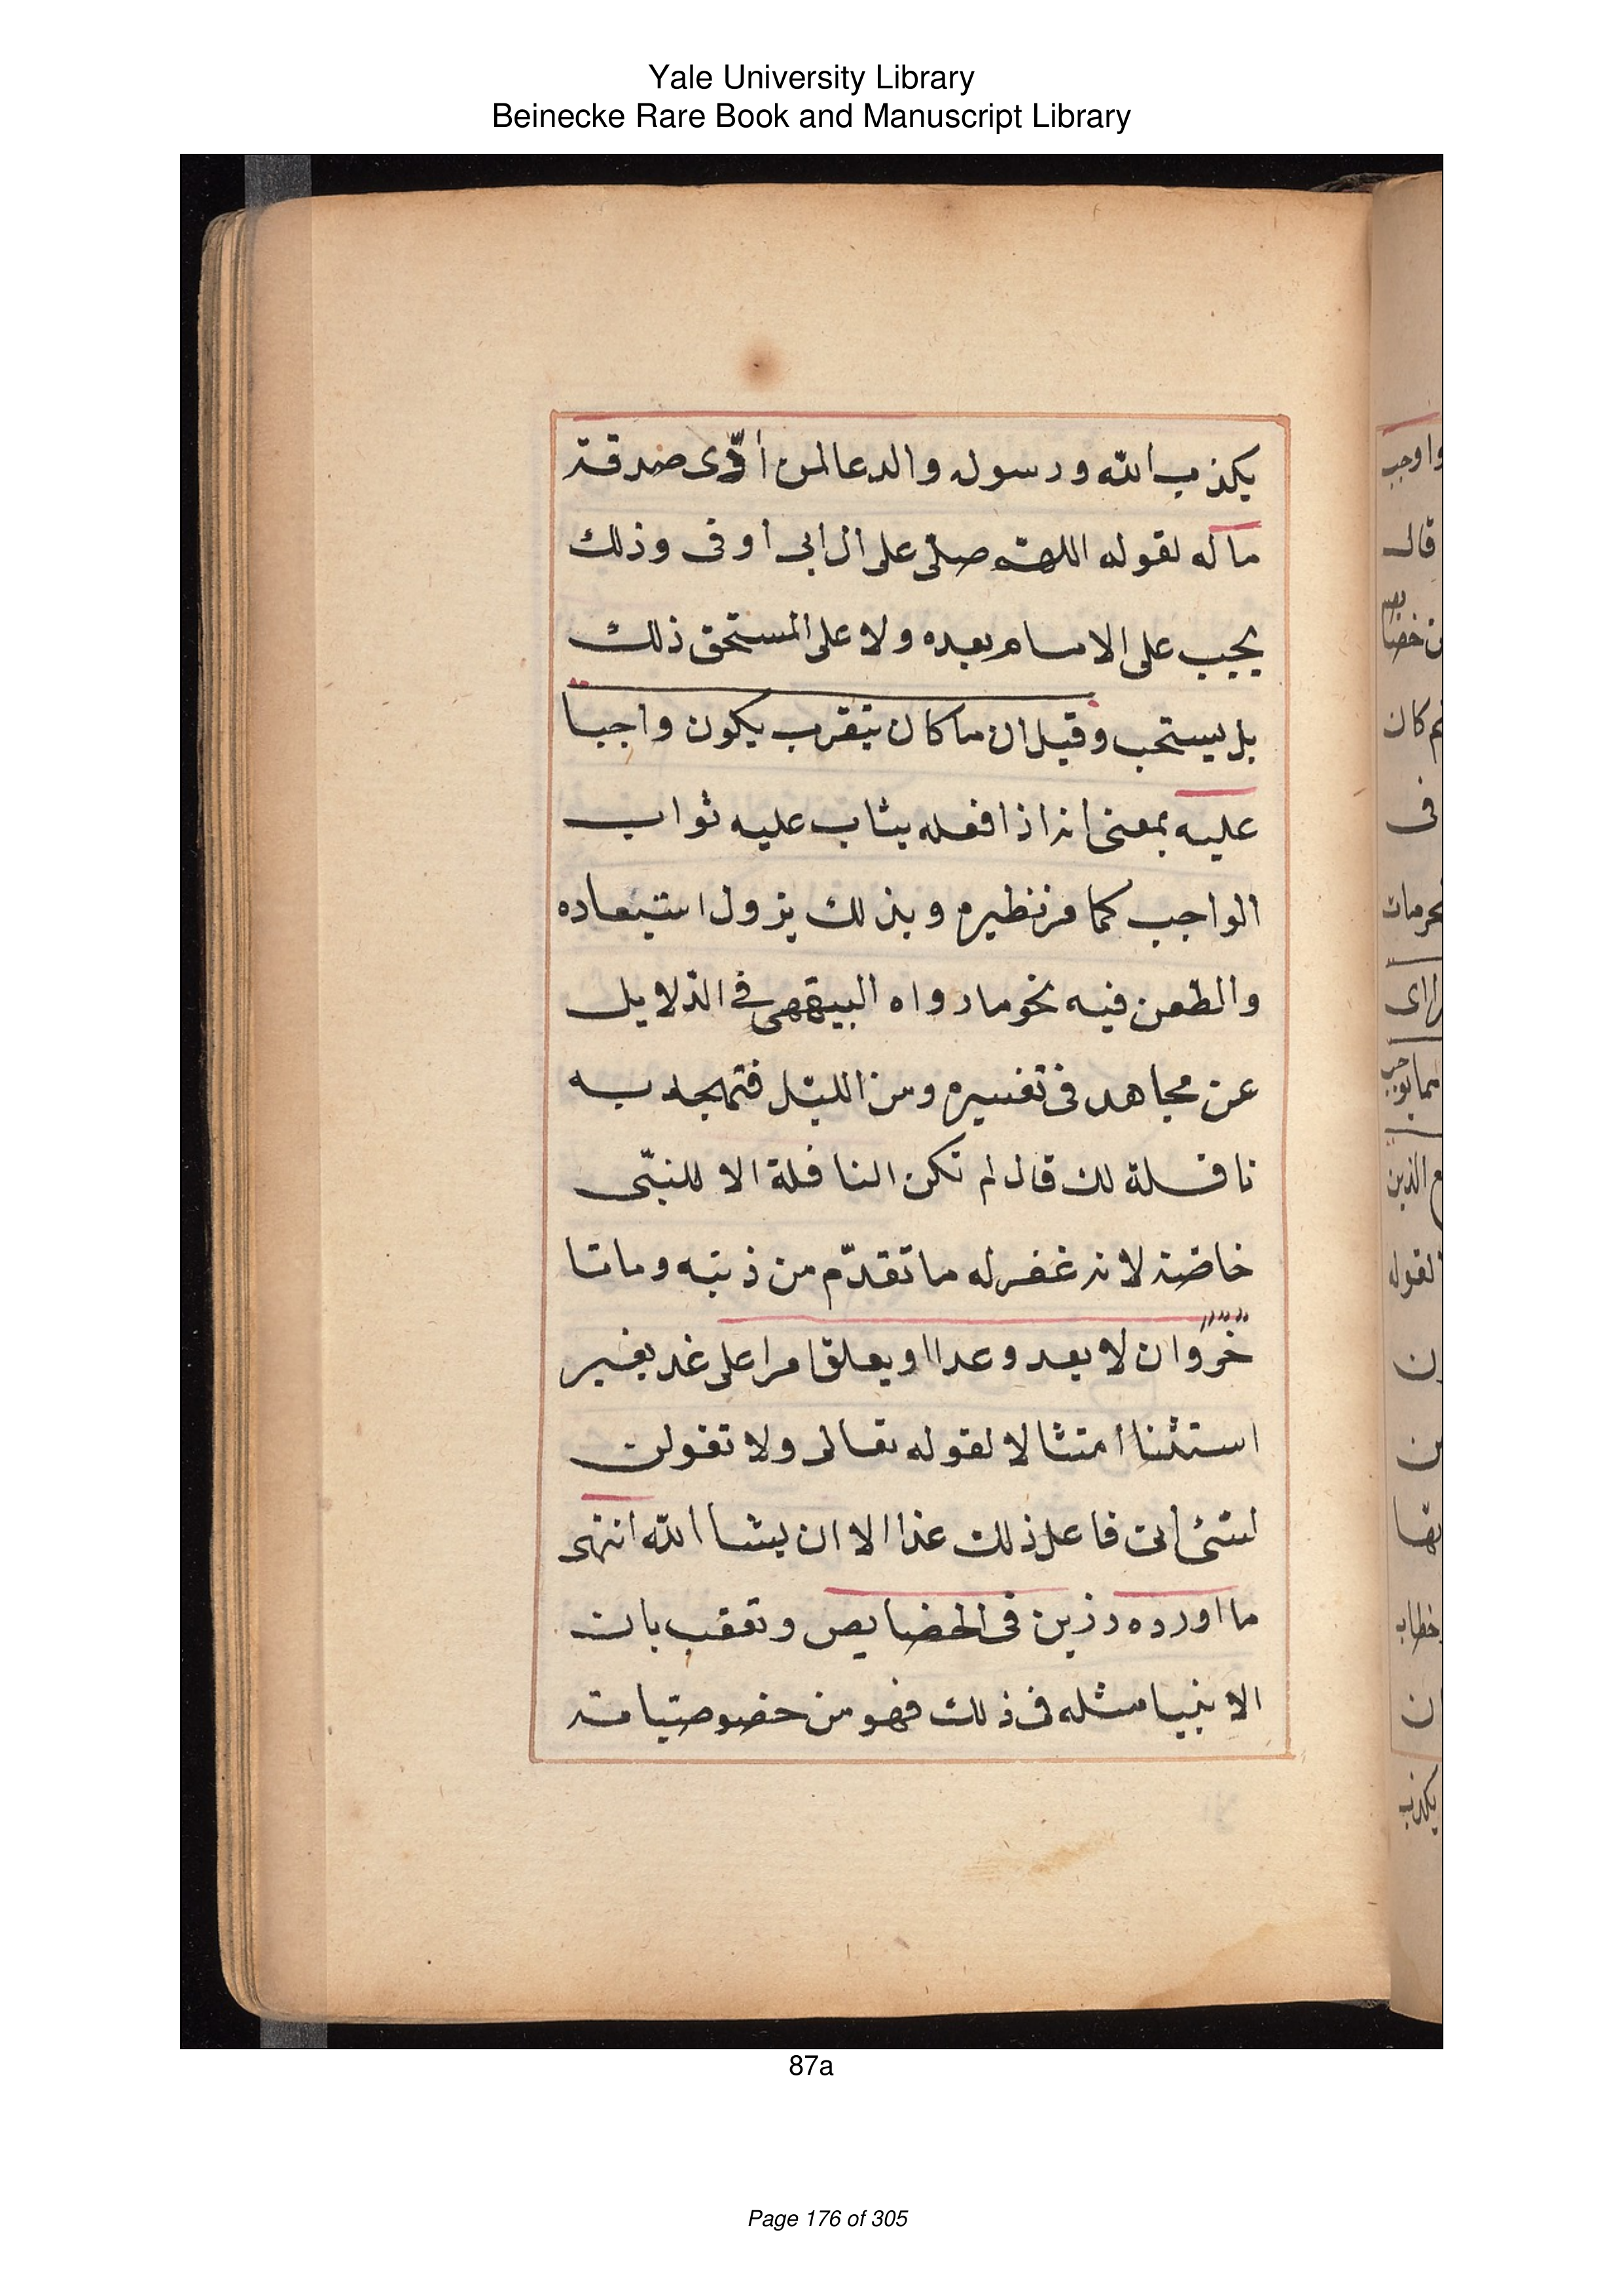 Yale University Library
Beinecke Rare Book and Manuscript Library
يكذب الله ورسوله والدعا لمن أدّى صدقة
ماله لقوله اللهم صلى على ال ابى اوفى وذلك
يجيب على الامام بعده ولا على المستحق ذلك
بل يستحب وقيل ان ما كان يتقرب يكون واجبا
عليه بمعنى انه اذا فعله يثاب عليه ثواب
الواجب كما مر نظيره وبذلك يزول استبعاده
والطعن فيه نحو ما رواه البيهقى فى الدلايل
عن مجاهد فى تفسيره ومن الليل فتهجد به
نافلة لك قال لم تكن النافلة الا للنبّى
خاصة لانه غفر له ما تقدّم من ذنبه وما تا
خر وان لا يعد وعدا او يعلق امرا على غد بغير
استثنا امتثالا لقوله تعالى ولا تقولن
لشئ انى فاعل ذلك غدا الا ان يشا الله انتهى
ما اورده رزين فى الخصايص وتعقب بان
الانبيا مثله فى ذلك فهو من خصوصياته
وا وجب
قال
كان
فى
الذين
لقوله
خطاب
يكذب
87a
Page 176 of 305